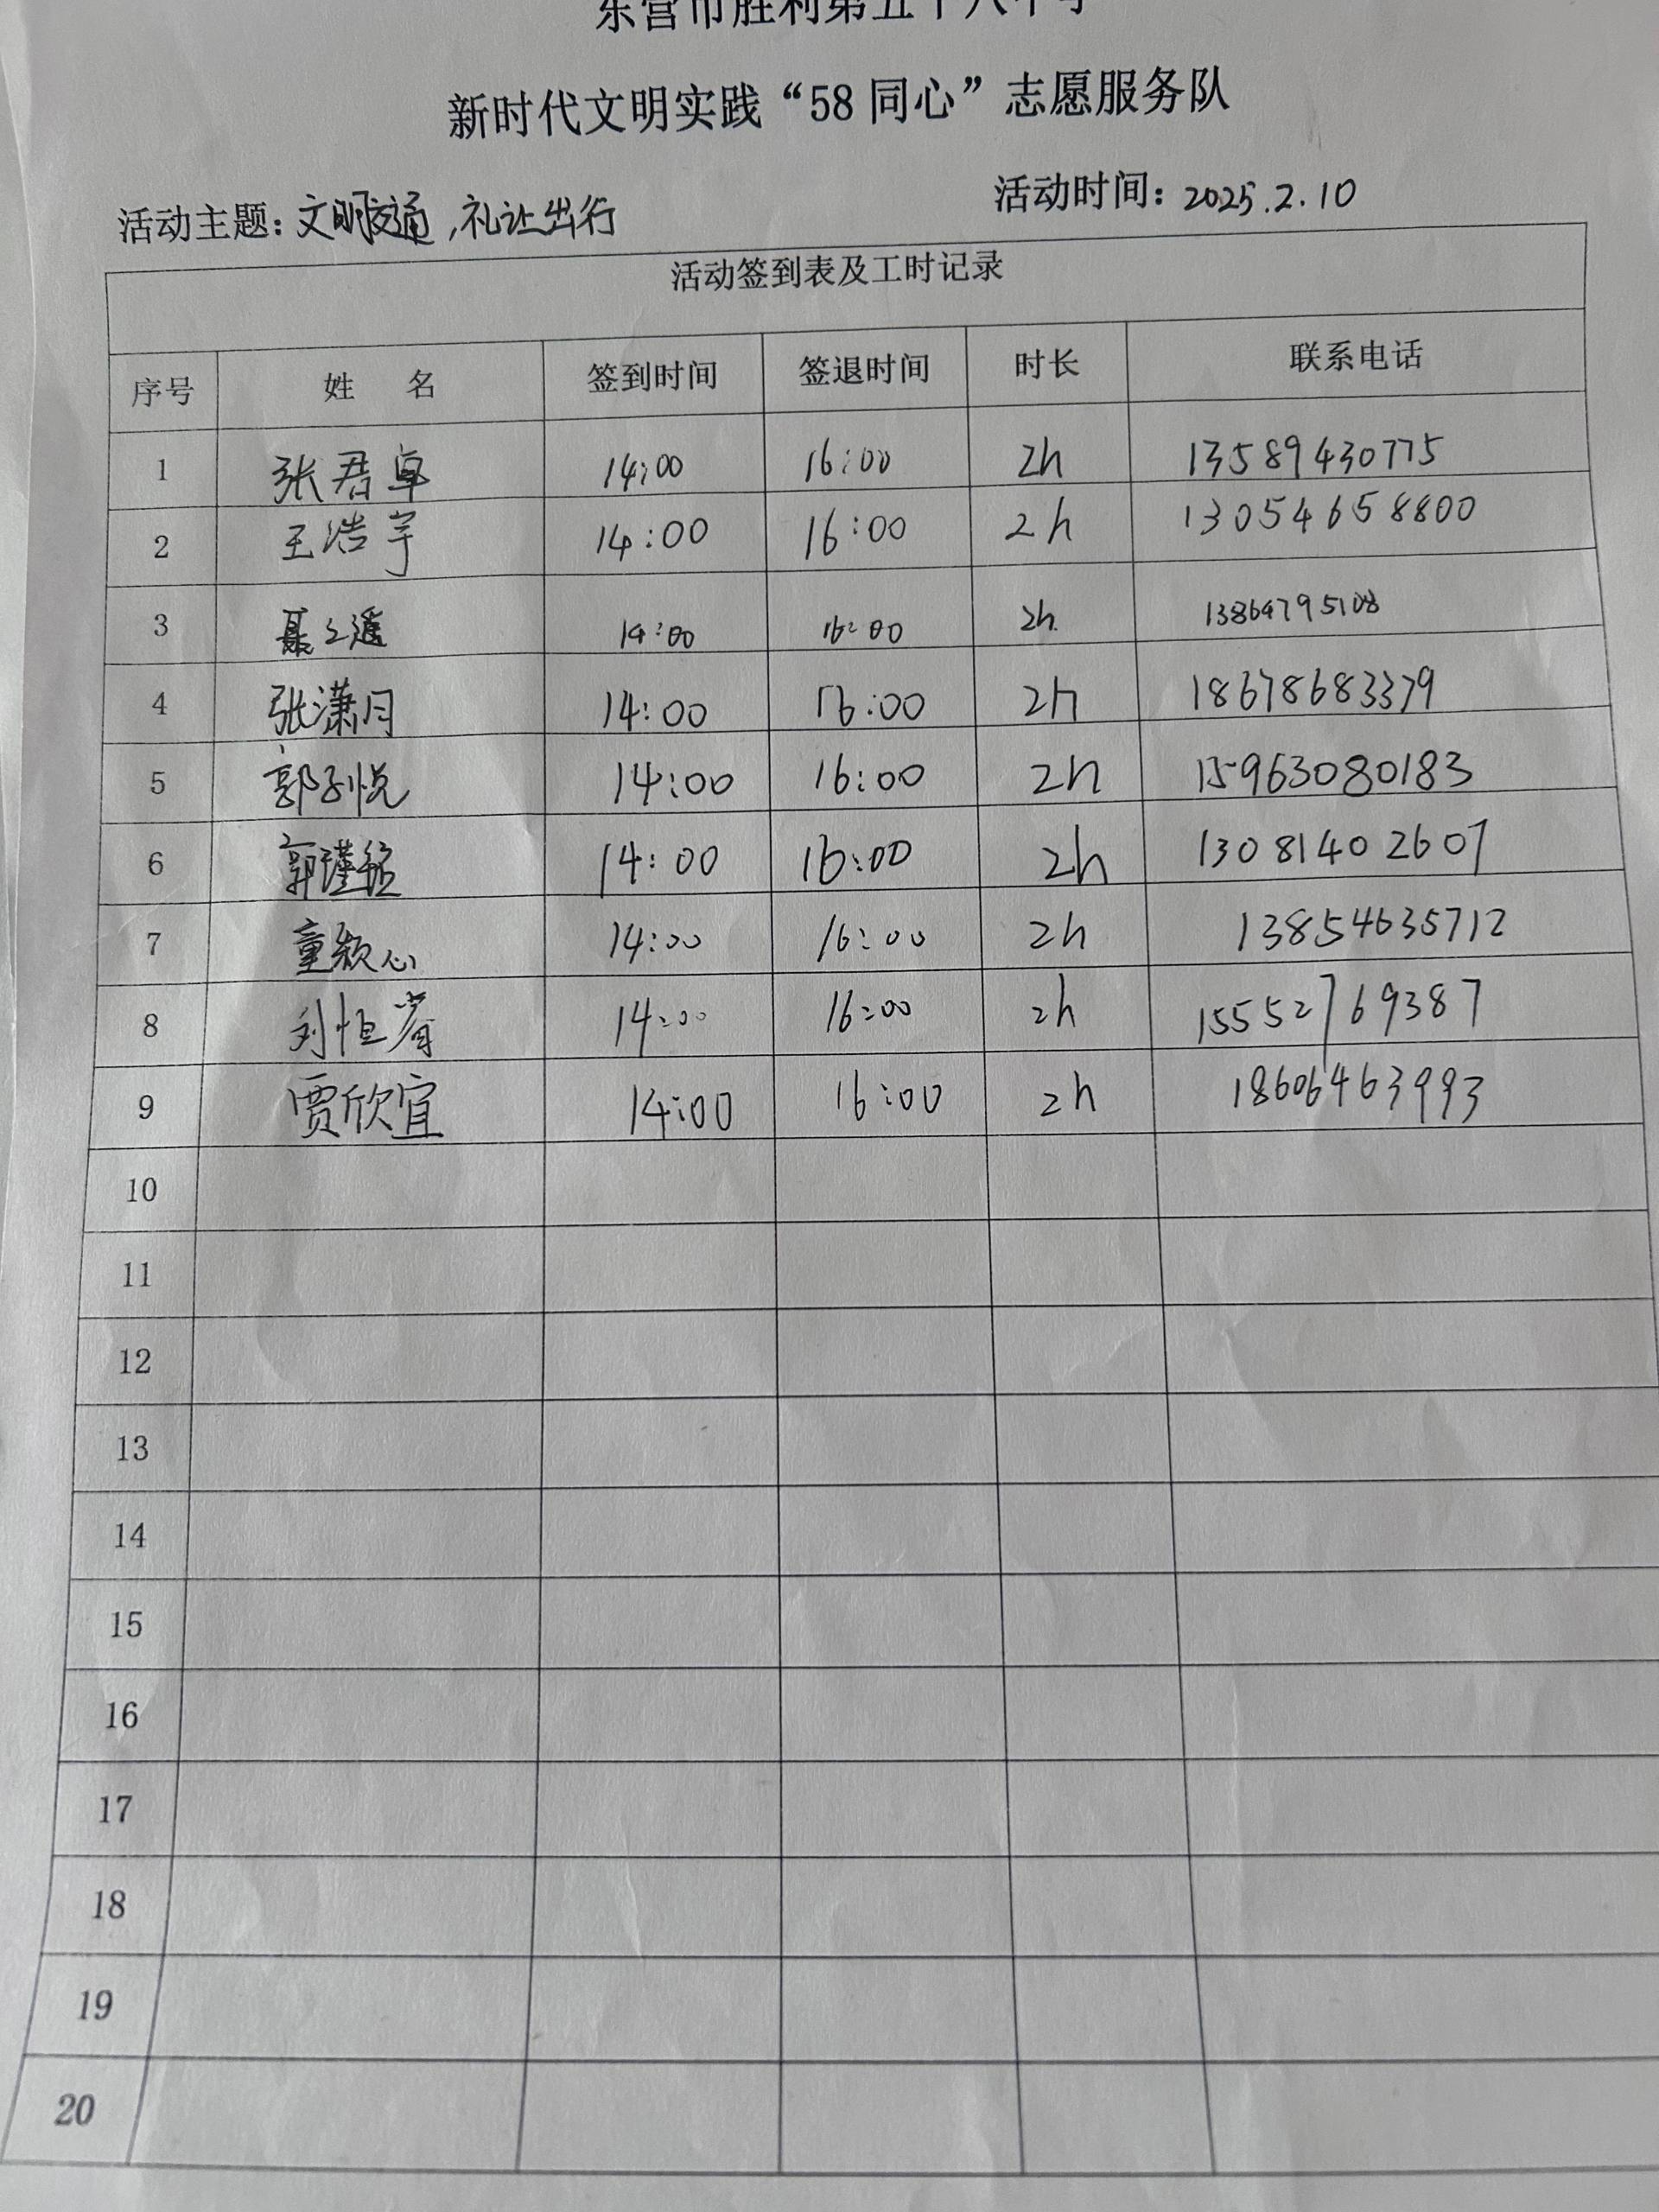 东营市胜利第五十八中学
新时代文明实践“58同心”志愿服务队
活动主题：文明交通，礼让出行 活动时间：2025.2.10
活动签到表及工时记录
序号 姓 名 签到时间 签退时间 时长 联系电话
1 张君卓 14:00 16:00 2h 13589430775
2 王浩宇 14:00 16:00 2h 13054658800
3 14:00 16:00 2h 13864795108
4 张潇月 14:00 16:00 2h 18678683379
5 郭子悦 14:00 16:00 2h 15963080183
6 郭瑾铭 14:00 16:00 2h 13081402607
7 童颖心 14:00 16:00 2h 13854635712
8 刘恒睿 14:00 16:00 2h 15552769387
9 贾欣宜 14:00 16:00 2h 18606463993
10
11
12
13
14
15
16
17
18
19
20